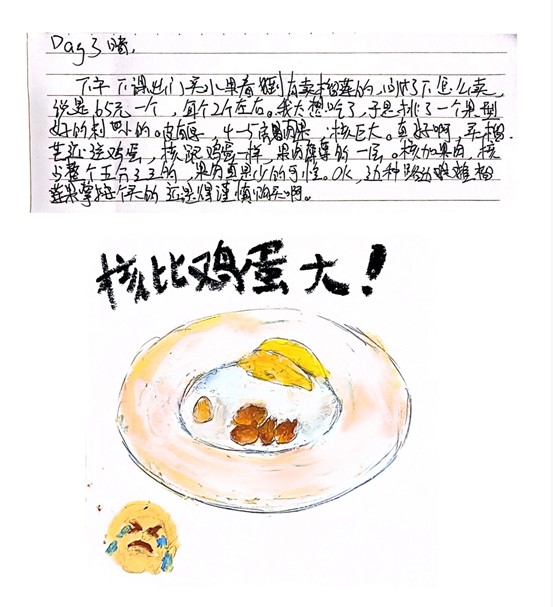 Day 3 晴.
下午下课出门买水果看到有卖榴莲的,问了下怎么卖,
说是65元一个,每个2斤左右。我太想吃了,于是挑了一个果型
好的刺 的。皮厚,4-5 果,核巨大。真好啊,买榴
莲 送鸡蛋,核跟鸡蛋一样,果肉 薄的一层。核加果肉,核
占整个五分之三的,果肉真是少的可怜。OK,这种路边 榴
莲果 个大的 还是得谨慎购买啊。
核比鸡蛋大!